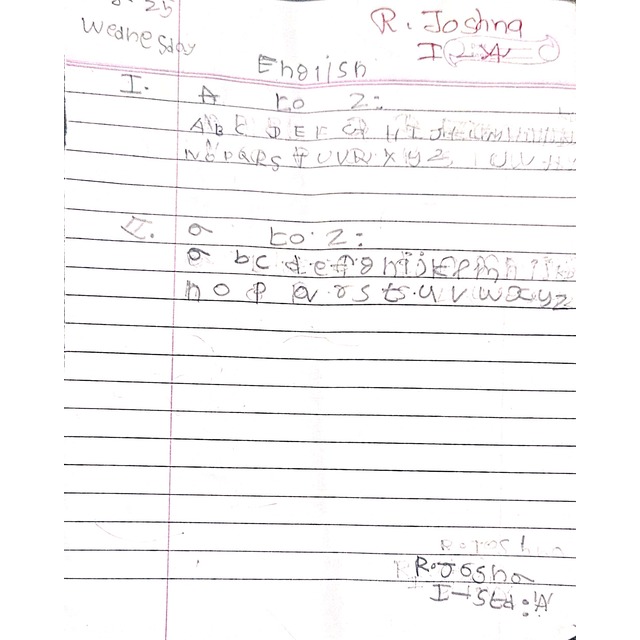 25
Wednesday
R. Joshna
I
English
I. A to Z:
A B C D E F G H I J K L M
N O P Q R S T U V W X Y Z
II. a to z:
a b c d e f g h i j k l m n
n o p q r s t s u v w x y z
R. Joshna
R. Joshna
I-Std: A